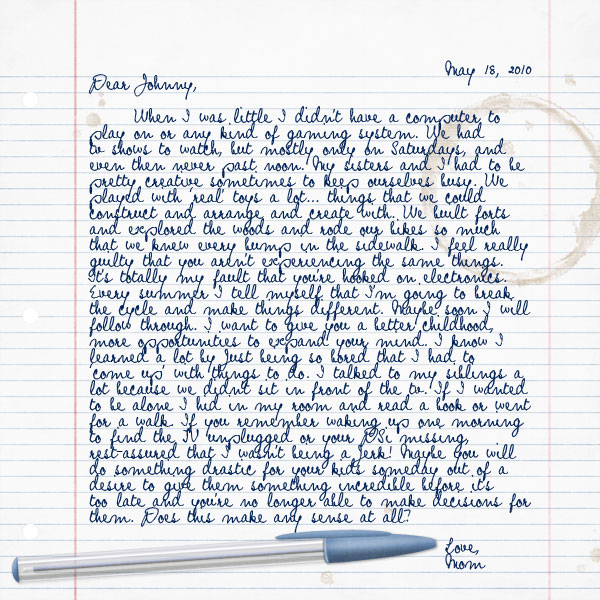 May 18, 2010
Dear Johnny,
When I was little I didn't have a computer to
play on or any kind of gaming system. We had
tv shows to watch, but mostly only on Saturdays, and
even then never past noon. My sisters and I had to be
pretty creative sometimes to keep ourselves busy. We
played with 'real' toys a lot... things that we could
construct and arrange and create with. We built forts
and explored the woods and rode our bikes so much
that we knew every bump in the sidewalk. I feel really
guilty that you aren't experiencing the same things.
It's totally my fault that you're hooked on electronics.
Every summer I tell myself that I'm going to break
the cycle and make things different. Maybe soon I will
follow through. I want to give you a better childhood,
more opportunities to expand your mind. I know I
learned a lot by just being so bored that I had to
'come up' with things to do. I talked to my siblings a
lot because we didn't sit in front of the tv. If I wanted
to be alone I hid in my room and read a book or went
for a walk. If you remember waking up one morning
to find the TV unplugged or your DSi missing,
rest-assured that I wasn't being a jerk! Maybe you will
do something drastic for your kids someday out of a
desire to give them something incredible before it's
too late and you're no longer able to make decisions for
them. Does this make any sense at all?
Love,
Mom